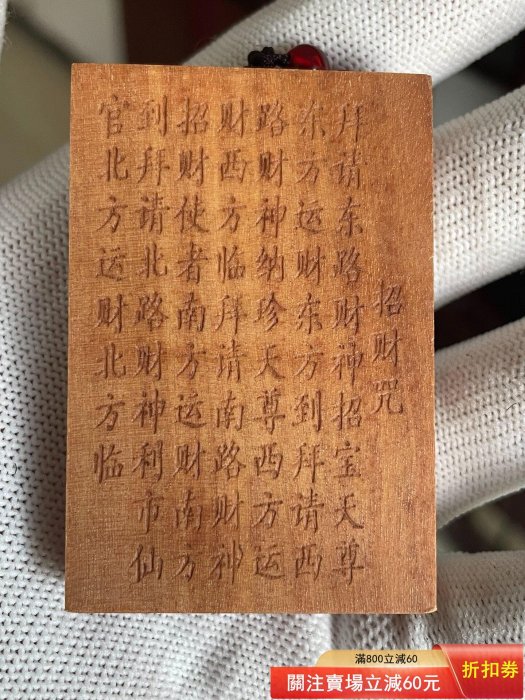 招财咒
拜请东路财神招宝天尊
东方运财东方到拜请西
路财神纳珍天尊西方运
财西方临拜请南路财神
招财使者南方运财南方
到拜请北路财神利市仙
官北方运财北方临
滿800立減60
關注賣場立減60元
折扣券